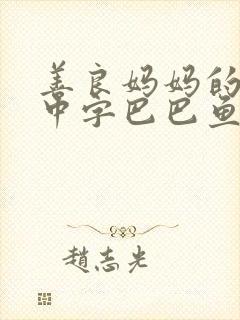 善良妈妈的
中字巴巴鱼
趙志光